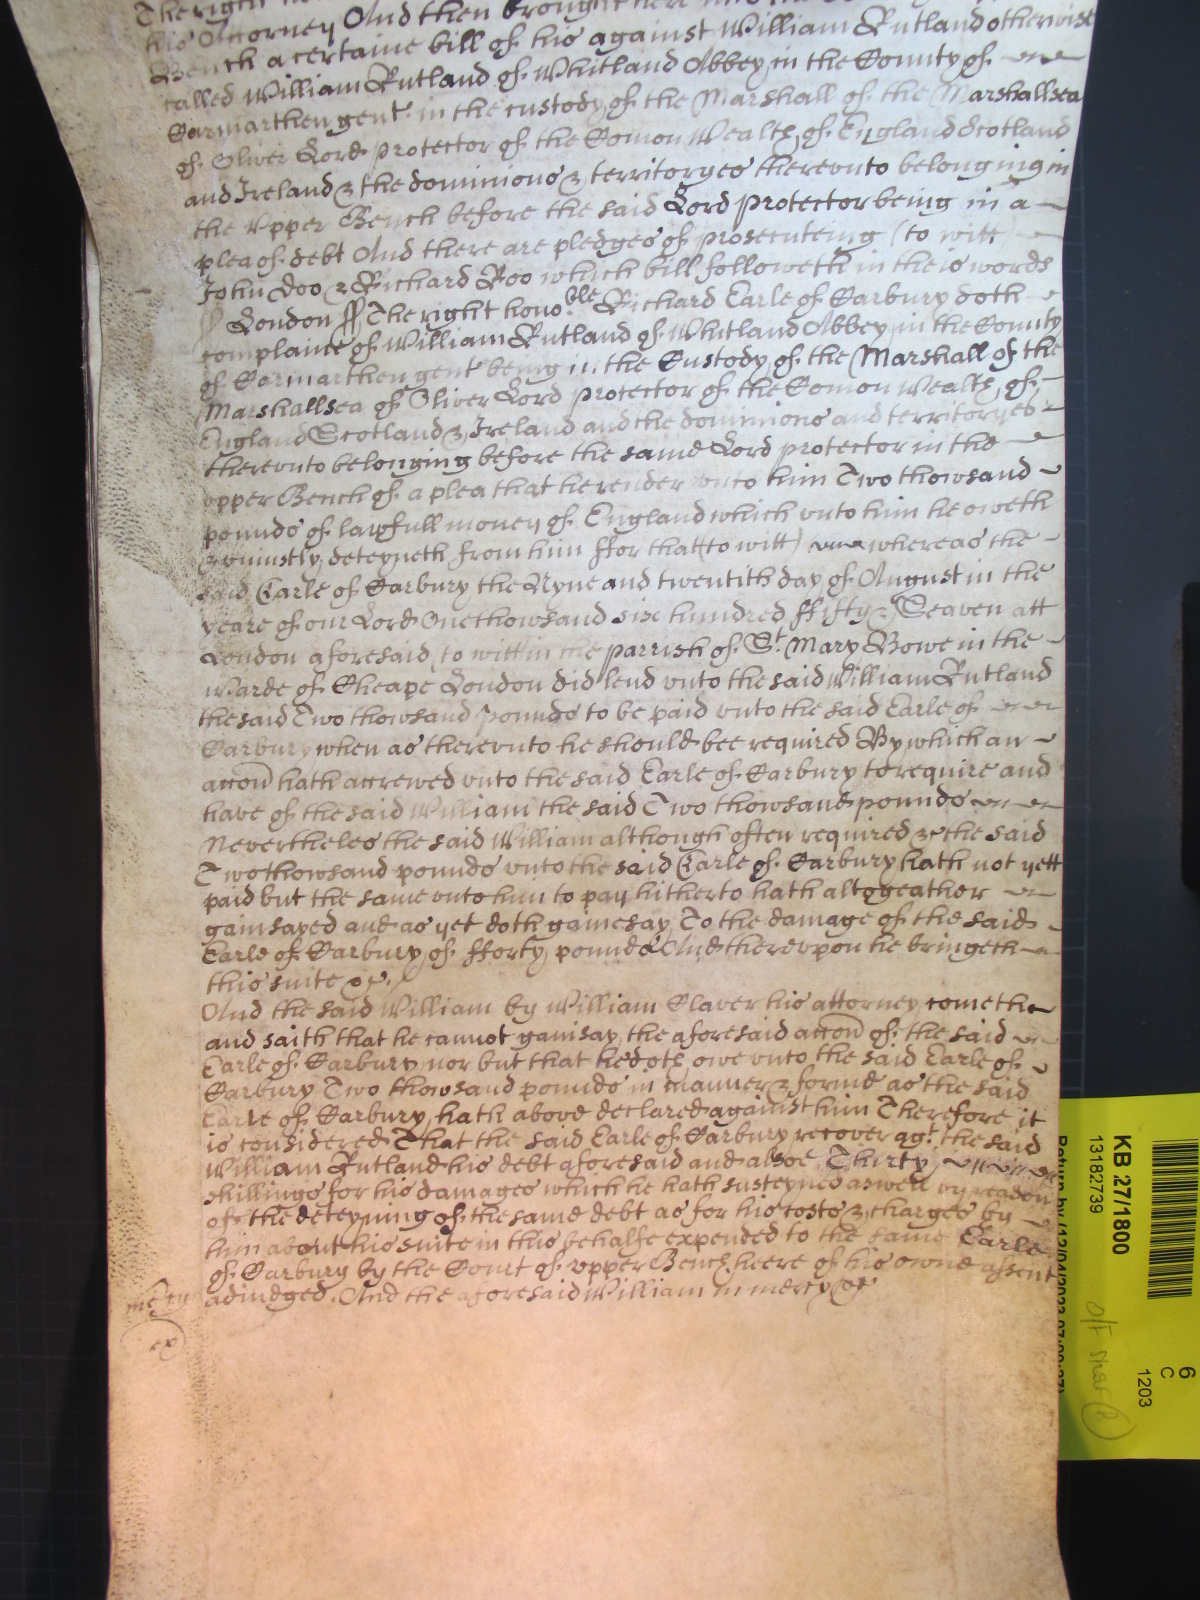 The right
his Attorney And then brought here into the
Bench a certaine bill of his against William Rutland otherwise
called William Rutland of Whitland Abbey in the County of
Carmarthen gent in the custody of the Marshall of the Marshallsea
of Oliver Lord protector of the Comon Wealth of England Scotland
and Ireland & the dominions & territoryes therevnto belonging in
the Vpper Bench before the said Lord protector being in a
plea of debt And there are pledges of prosecuteing (to witt
John Doo & Richard Roo which bill followeth in theis words
London ss The right hono:ble Richard Earle of Carbury doth
complaine of William Rutland of Whitland Abbey in the County
of Carmarthen gent being in the Custody of the Marshall of the
Marshallsea of Oliver Lord protector of the Comon Wealth of
England Scotland & Ireland and the dominions and territoryes
therevnto belonging before the same Lord protector in the
vpper Bench of a plea that he render vnto him Two thowsand
pounds of lawfull money of England which vnto him he oweth
& vniustly deteyneth from him ffor that (to witt) whereas the
said Earle of Carbury the Nyne and twentith day of August in the
yeare of our Lord One thowsand six hundred ffifty & Seaven att
London aforesaid (to witt in the parrish of St. Mary Bowe in the
Warde of Cheape London did lend vnto the said William Rutland
the said Two thowsand pounds to be paid vnto the said Earle of
Carbury when as therevnto he should bee required By which an
accon hath accrewed vnto the said Earle of Carbury to require and
have of the said William the said Two thowsand pounds
Neverthelesse the said William although often required &c the said
Two thowsand pounds vnto the said Earle of Carbury hath not yett
paid but the same vnto him to pay hitherto hath altogeather
gainsayed and as yet doth gainesay To the damage of the said
Earle of Carbury of fforty pounds And therevpon he bringeth
this suite &c.
And the said William by William Claver his attorney cometh
and saith that he cannot gainsay the aforesaid accon of the said
Earle of Carbury nor but that he doth owe vnto the said Earle of
Carbury Two thowsand pounds in manner & forme as the said
Earle of Carbury hath above declared against him Therefore it
is considered That the said Earle of Carbury recover agt. the said
William Rutland his debt aforesaid and alsoe Thirty
shillings for his damages which he hath susteyned aswell by reason
of the deteyning of the same debt as for his costs & charges by
him about his suite in this behalfe expended to the same Earle
of Carbury by the Court of vpper Bench heere of his owne assent
adiudged. And the aforesaid William in mercy &c
mercy
ex
KB 27/1800
13182739
6
C
1203